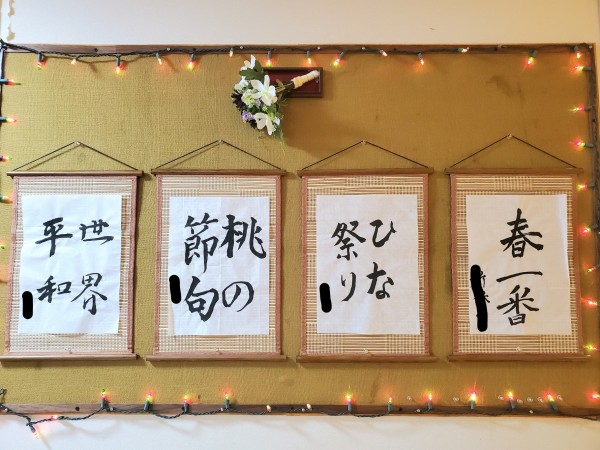 春一番
ひな
祭り
桃の
節句
世界
平和